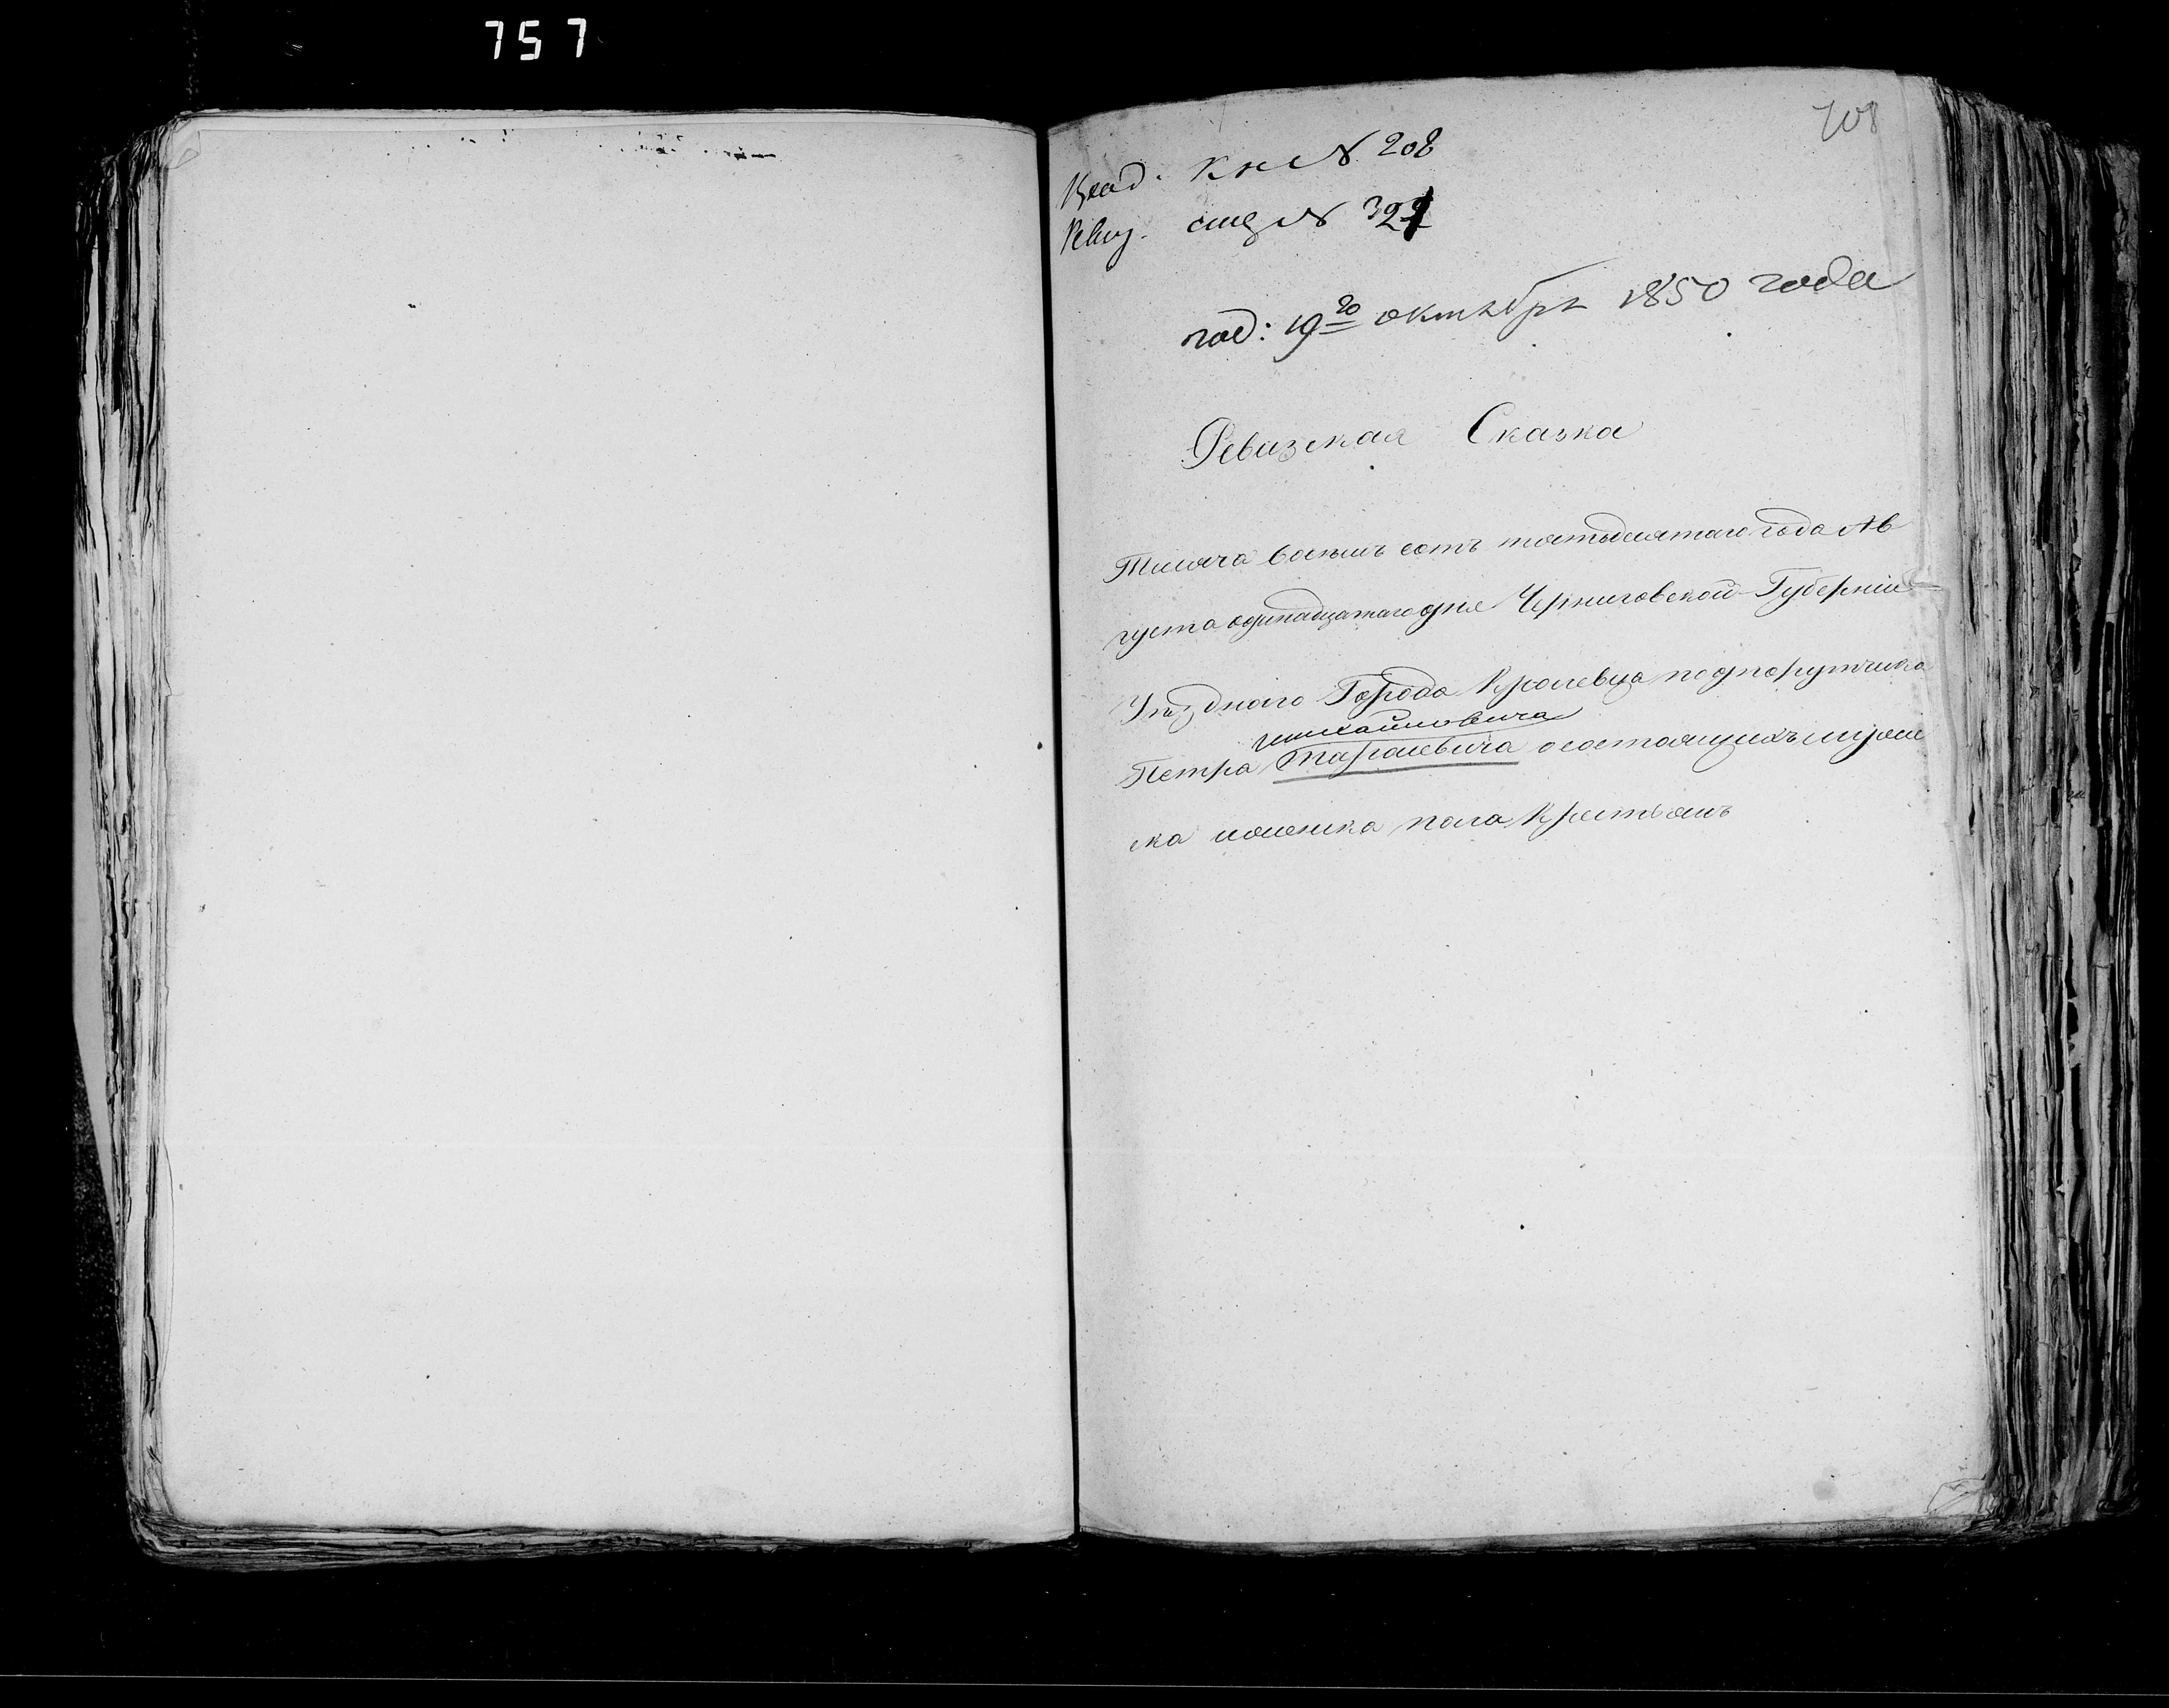 757
708
Влад. Кн № 208
Ревиз. сшв № 321
под: 19го октября 1850 года
Ревизская Сказка
Тысяча восемь сотъ пятьдесятаго года Ав
густа одинадцатаго дня Черниговской Губерніи
Уѣзднаго Города Кролевца подпорутчика
михайловича
Петра Тарасевича о состоящихъ мужес
ка и женска пола Крестьянъ